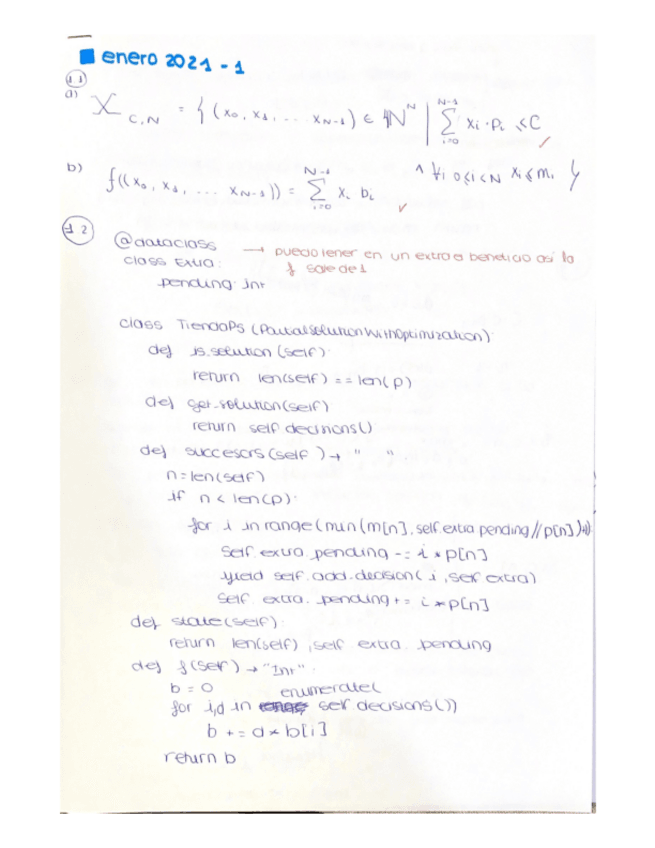 enero 2021 - 1
1.1
a) X C,N = { (x0, x1, ... xN-1) ∈ ℕ^N | Σ_{i=0}^{N-1} xi · Pi ≤ C
^ ∀i 0≤i<N xi ≤ mi }
b) f((x0, x1, ... xN-1)) = Σ_{i=0}^{N-1} xi bi
1.2
@dataclass → puedo tener en un extra el beneficio así la
class Extra: f sale de 1
pending: int
class TiendaPS (PartialSolutionWithOptimization):
def is_solution (self):
return len(self) == len(p)
def get_solution(self)
return self.decisions()
def succesors (self) → " ".
n = len(self)
if n < len(p):
for i in range(min(m[n], self.extra.pending//p[n])+1):
self.extra.pending -= i * p[n]
yield self.add_decision(i, self.extra)
self.extra.pending += i * p[n]
def state(self):
return len(self), self.extra.pending
def f(self) → "Int":
b = 0
enumerate(
for i,d in self.decisions())
b += d * b[i]
return b